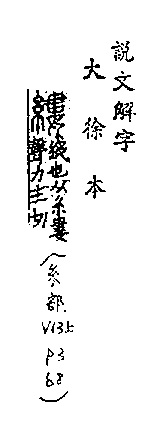 説文解字
大徐本
縷綫也从糸婁
聲力主切
(糸部
V13上
P3
68)